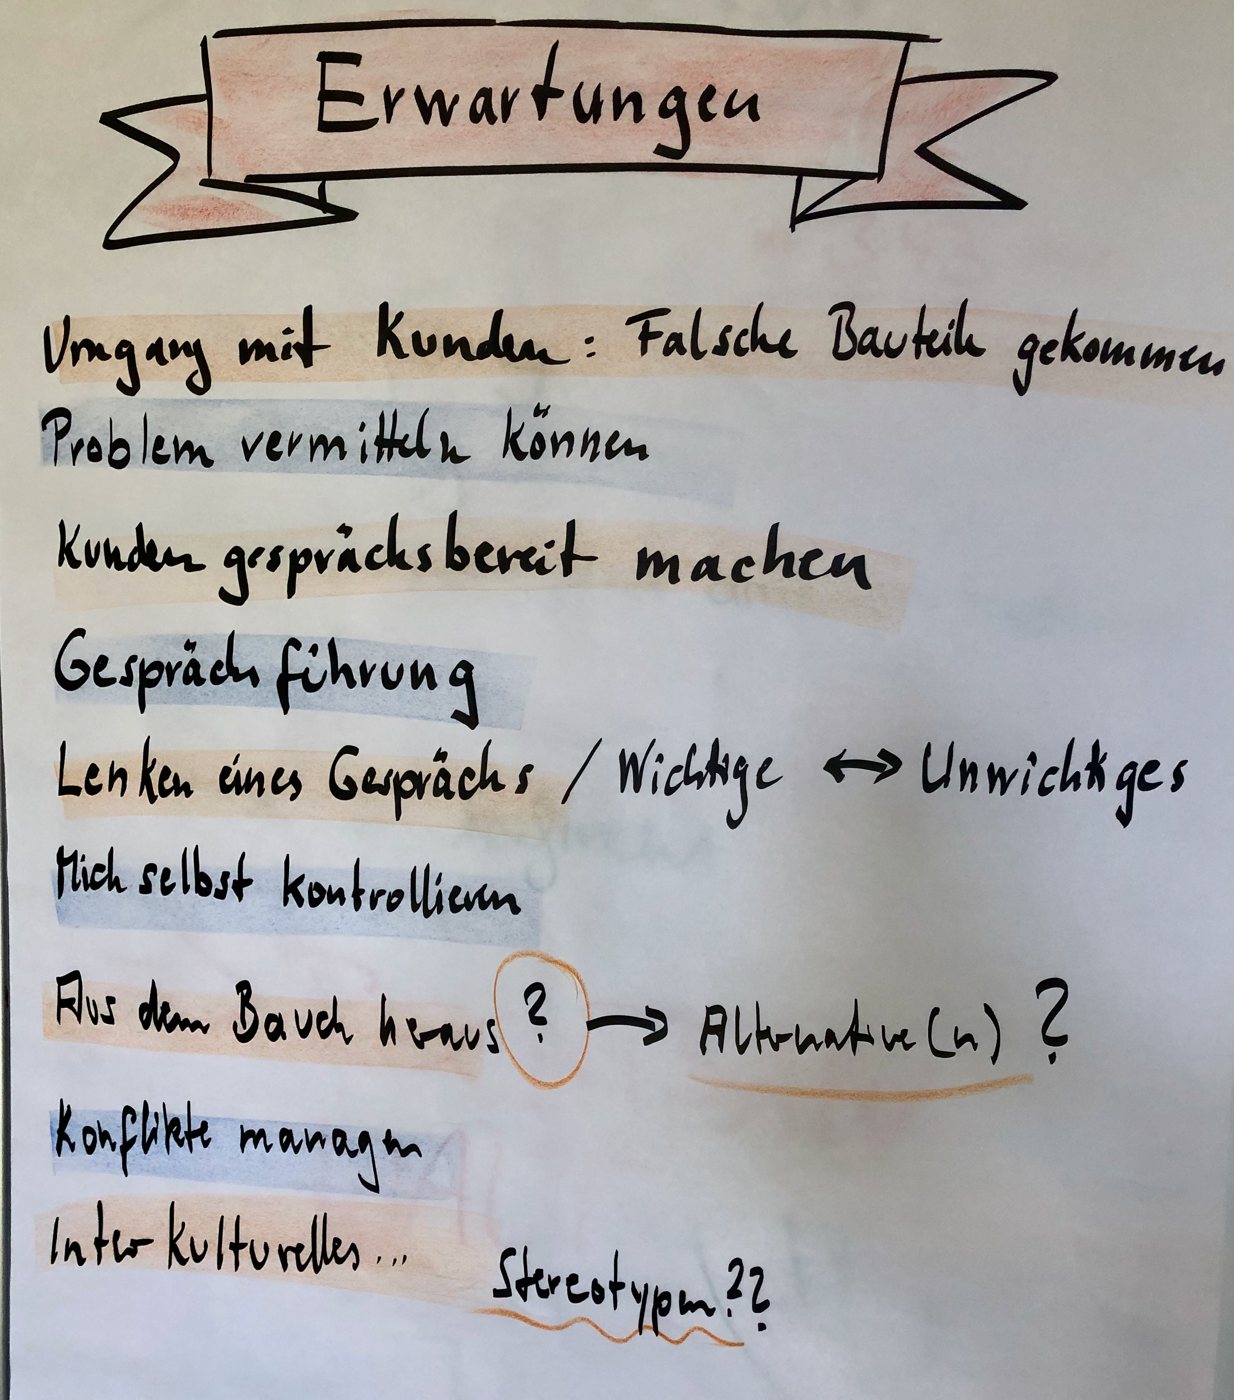 Erwartungen
Umgang mit Kunden: Falsche Bauteile gekommen
Problem vermitteln können
Kunden gesprächsbereit machen
Gesprächsführung
Lenken eines Gesprächs / Wichtige ↔ Unwichtiges
Mich selbst kontrollieren
Aus dem Bauch heraus ? → Alternative(n) ?
Konflikte managen
Interkulturelles...
Stereotypen??